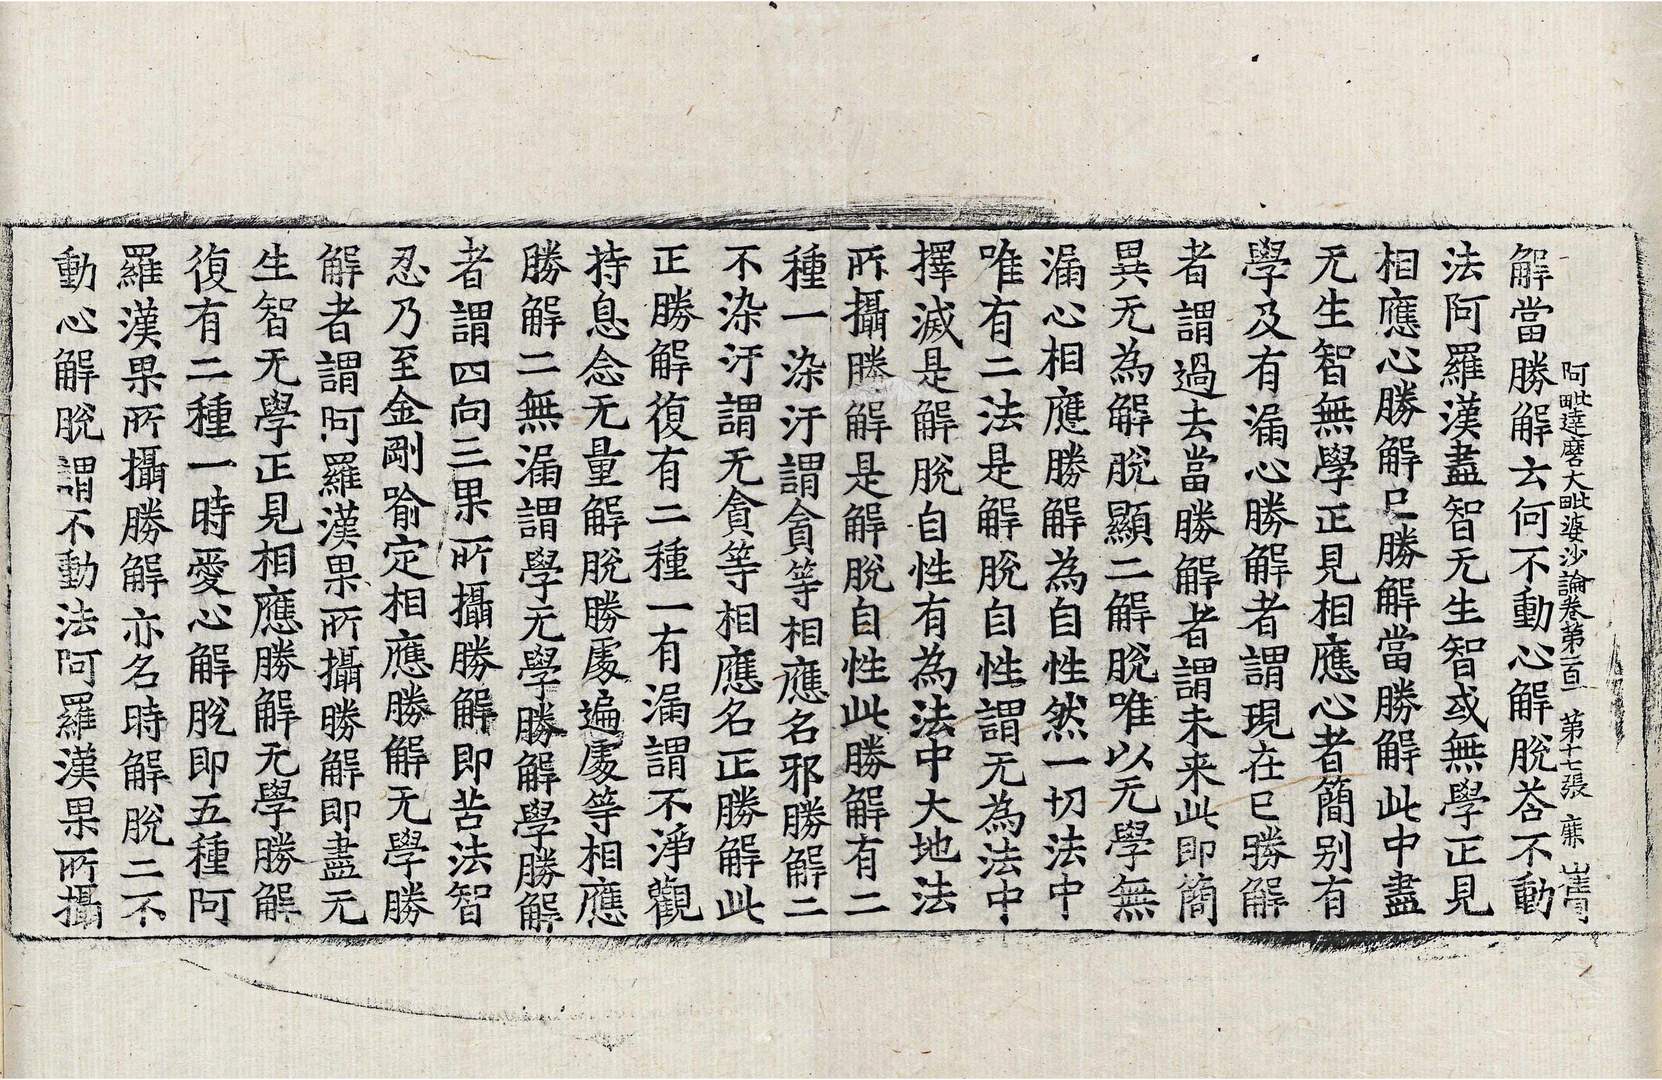 阿毗達磨大毗婆沙論卷第一百一 第十七張 廉
解當勝解云何不動心解脫荅不動
法阿羅漢盡智无生智或無學正見
相應心勝解已勝解當勝解此中盡
无生智無學正見相應心者簡别有
學及有漏心勝解者謂現在已勝解
者謂過去當勝解者謂未来此即簡
異无為解脫顯二解脫唯以无學無
漏心相應勝解為自性然一切法中
唯有二法是解脫自性謂无為法中
擇滅是解脫自性有為法中大地法
所攝勝解是解脫自性此勝解有二
種一染汙謂貪等相應名邪勝解二
不染汙謂无貪等相應名正勝解此
正勝解復有二種一有漏謂不淨觀
持息念无量解脫勝處遍處等相應
勝解二無漏謂學无學勝解學勝解
者謂四向三果所攝勝解即苦法智
忍乃至金剛喻定相應勝解无學勝
解者謂阿羅漢果所攝勝解即盡无
生智无學正見相應勝解无學勝解
復有二種一時愛心解脫即五種阿
羅漢果所攝勝解亦名時解脫二不
動心解脫謂不動法阿羅漢果所攝